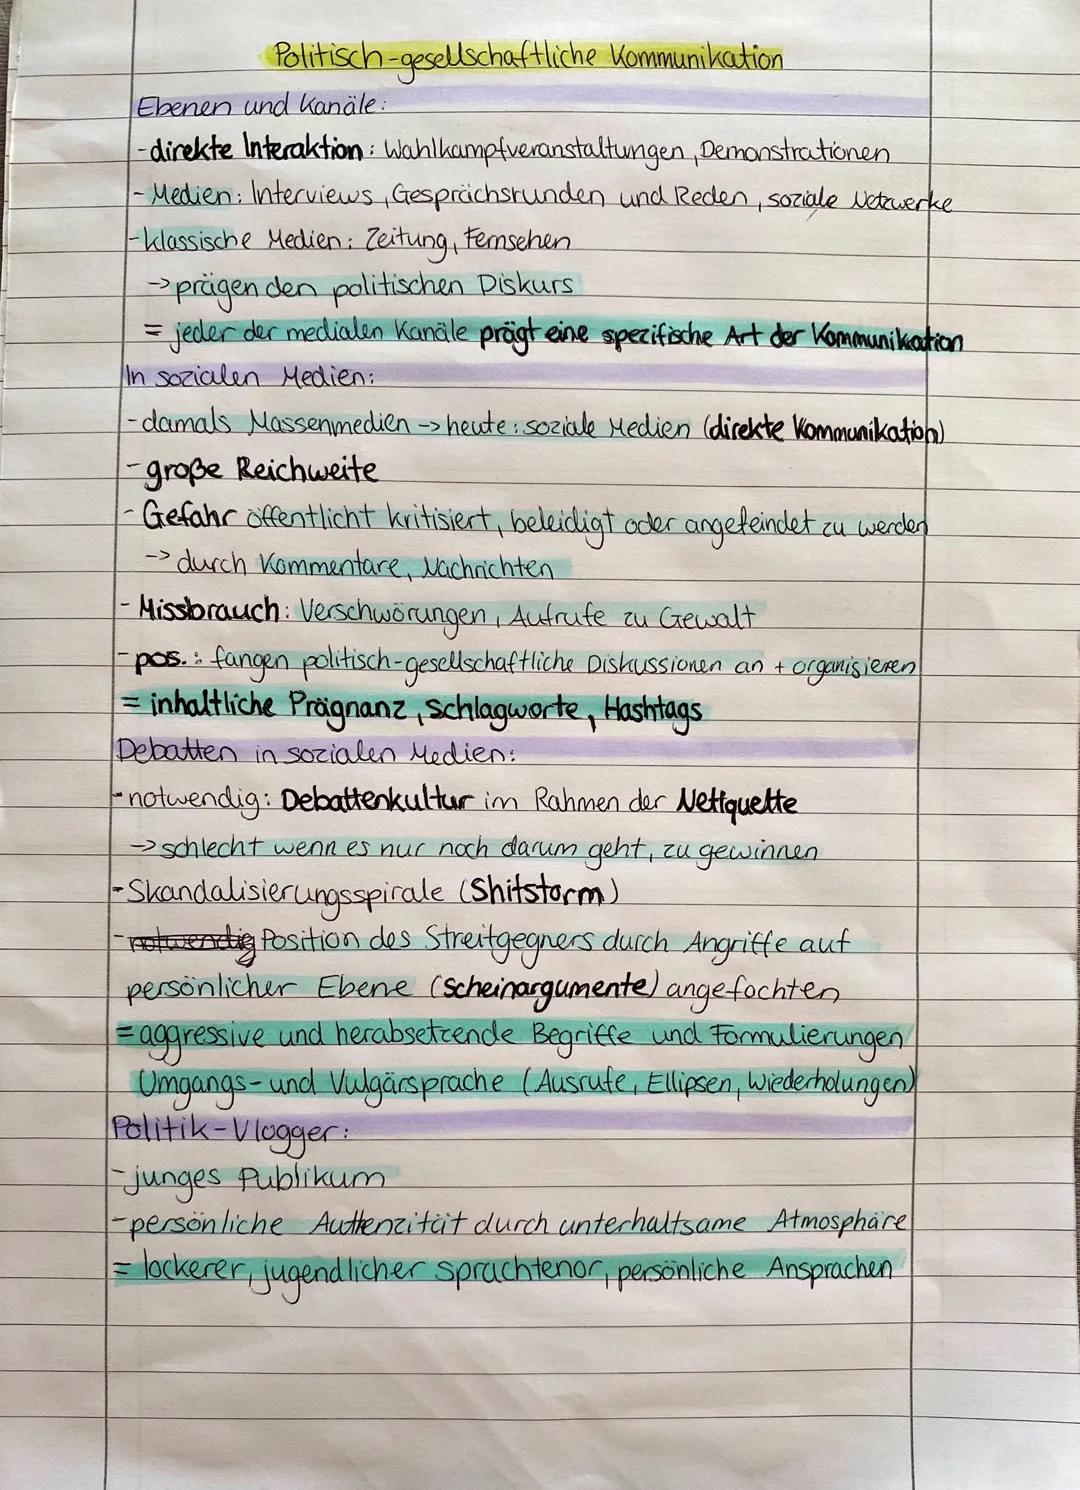 Politisch-gesellschaftliche Kommunikation
Ebenen und Kanäle:
-direkte Interaktion: Wahlkampfveranstaltungen, Demonstrationen
- Medien: Interviews, Gesprächsrunden und Reden, soziale Netzwerke
-klassische Medien: Zeitung, Fernsehen
-> prägen den politischen Diskurs
= jeder der medialen Kanäle prägt eine spezifische Art der Kommunikation
In sozialen Medien:
-damals Massenmedien -> heute: soziale Medien (direkte Kommunikation)
- große Reichweite
- Gefahr öffentlicht kritisiert, beleidigt oder angefeindet zu werden
-> durch Kommentare, Nachrichten
- Missbrauch: Verschwörungen, Aufrufe zu Gewalt
- pos.: fangen politisch-gesellschaftliche Diskussionen an + organisieren
= inhaltliche Prägnanz, Schlagworte, Hashtags
Debatten in sozialen Medien:
-notwendig: Debattenkultur im Rahmen der Nettiquette
-> schlecht wenn es nur noch darum geht, zu gewinnen
- Skandalisierungsspirale (Shitstorm)
- notwendig Position des Streitgegners durch Angriffe auf
persönlicher Ebene (Scheinargumente) angefochten
= aggressive und herabsetzende Begriffe und Formulierungen
Umgangs- und Vulgärsprache (Ausrufe, Ellipsen, Wiederholungen)
Politik-Vlogger:
- junges Publikum
-persönliche Authenzität durch unterhaltsame Atmosphäre
= lockerer, jugendlicher Sprachtenor, persönliche Ansprachen